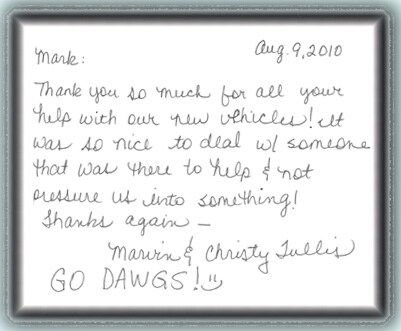 Aug. 9, 2010
Mark:
Thank you so much for all your
help with our new vehicles! It
was so nice to deal w/ someone
that was there to help & not
pressure us into something!
Thanks again —
Marvin & Christy Tullis
GO DAWGS!